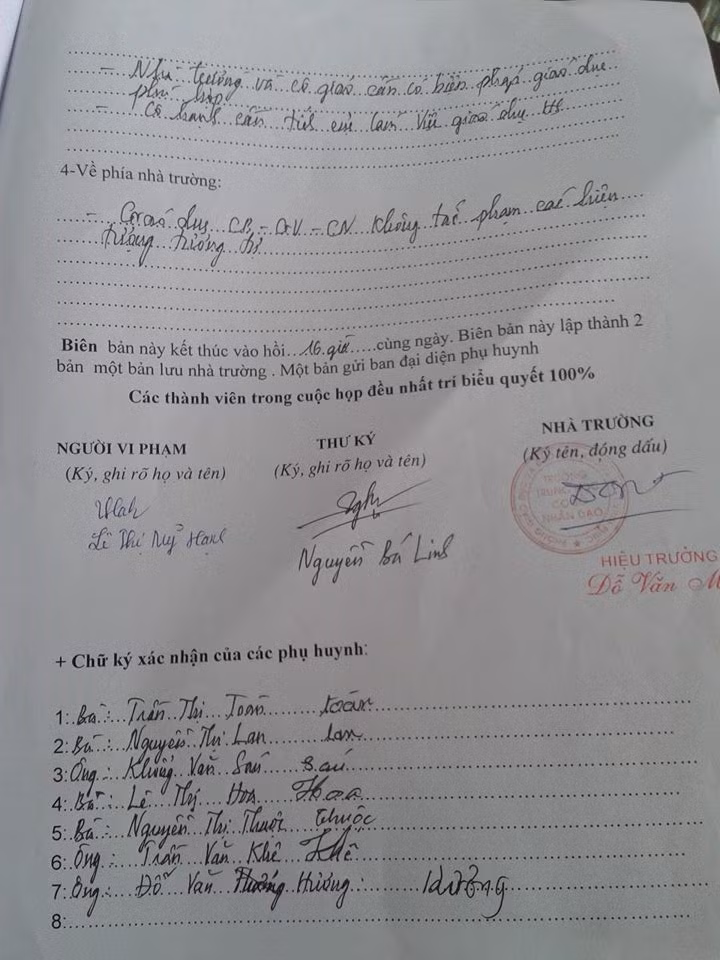 - Nhà trường và cô giáo cần có biện pháp giáo dục
phù hợp
- Cô Hạnh cần làm giáo dục HS
4-Về phía nhà trường:
- Giáo dục CB - GV - CN không tái phạm các hiện
tượng tương tự
Biên bản này kết thúc vào hồi...16 giờ.....cùng ngày. Biên bản này lập thành 2
bản một bản lưu nhà trường . Một bản gửi ban đại diện phụ huynh
Các thành viên trong cuộc họp đều nhất trí biểu quyết 100%
NGƯỜI VI PHẠM
(Ký, ghi rõ họ và tên)
Lê Thị Mỹ Hạnh
THƯ KÝ
(Ký, ghi rõ họ và tên)
Nguyễn Bá Linh
NHÀ TRƯỜNG
(Ký tên, đóng dấu)
TRƯỜNG
NHÂN ĐẠO
HIỆU TRƯỞNG
Đỗ Văn M
+ Chữ ký xác nhận của các phụ huynh:
1: Bà: Trần Thị Toàn toàn
2: Bà: Nguyễn Thị Lan Lan
3: Ông: Khổng Văn Sáu Sáu
4: Bà: Lê Thị Hoa Hoa
5: Bà: Nguyễn Thị Thuột thuộc
6: Ông: Trần Văn Khê Khê
7: Ông: Đỗ Văn Hương: Hương
8: